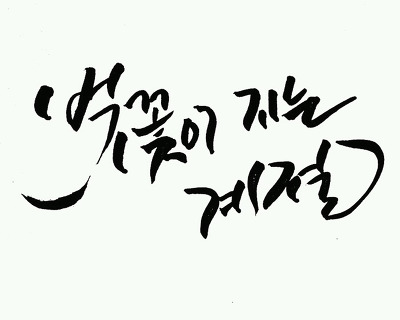 벚꽃이 지는
계절